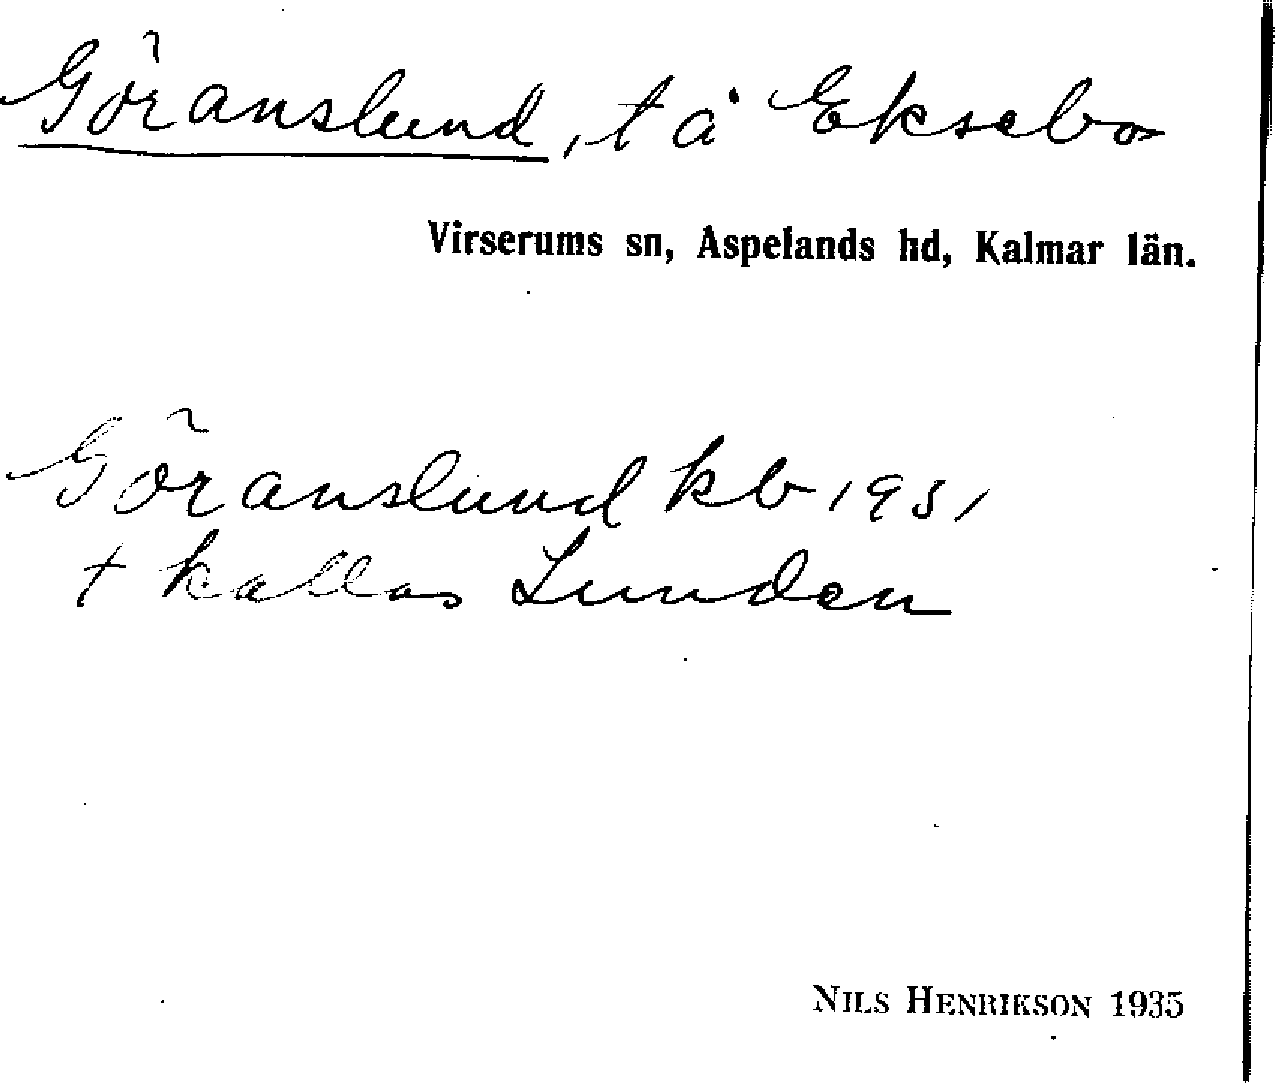 Göranslund, t å Eksebo
Virserums sn, Aspelands hd, Kalmar län.
Göranslund kb 1931
t kallas Lunden
NILS HENRIKSON 1935